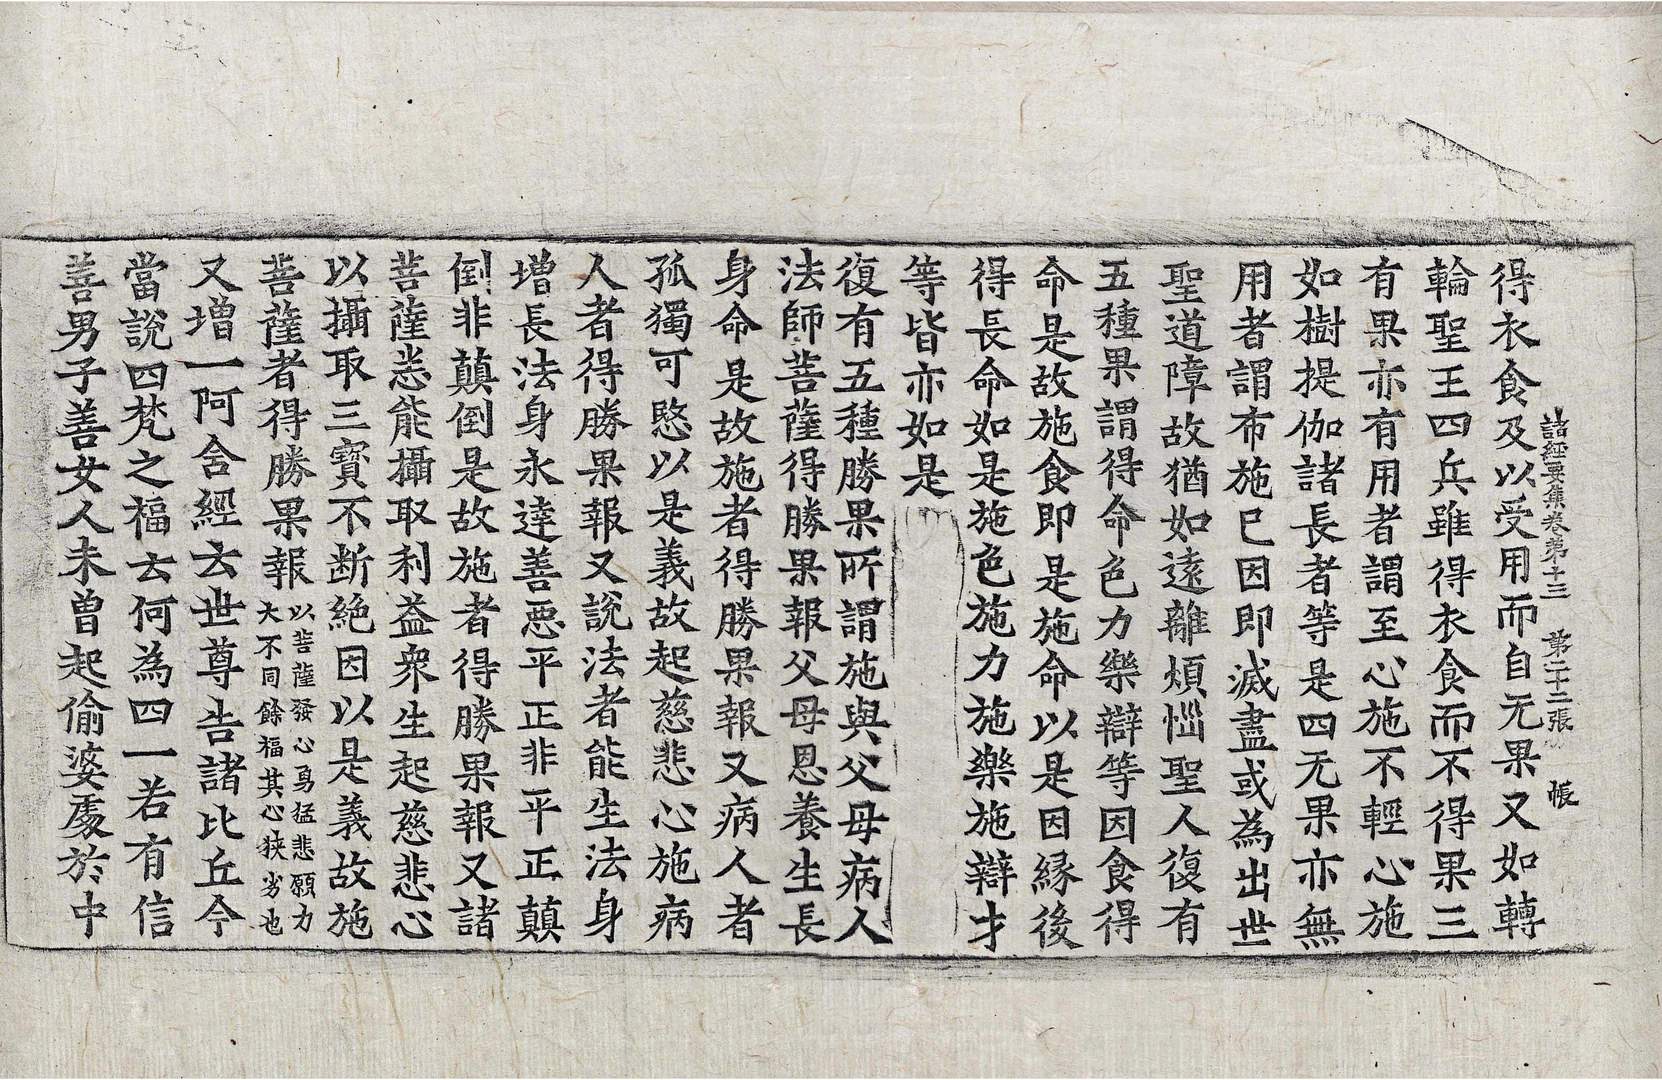 諸經要集卷第十三 第二十二張 帳
得衣食及以受用而自无果又如轉
輪聖王四兵雖得衣食而不得果三
有果亦有用者謂至心施不輕心施
如樹提伽諸長者等是四无果亦無
用者謂布施已因即滅盡或為出世
聖道障故猶如遠離煩惱聖人復有
五種果謂得命色力樂辯等因食得
命是故施食即是施命以是因緣後
得長命如是施色施力施樂施辯才
等皆亦如是
復有五種勝果所謂施與父母病人
法師菩薩得勝果報父母恩養生長
身命是故施者得勝果報又病人者
孤獨可愍以是義故起慈悲心施病
人者得勝果報又說法者能生法身
增長法身永達善惡平正非平正顛
倒非顛倒是故施者得勝果報又諸
菩薩悉能攝取利益衆生起慈悲心
以攝取三寶不断絕因以是義故施
菩薩者得勝果報以菩薩發心勇猛悲願力
大不同餘福其心狹劣也
又增一阿含經云世尊告諸比丘今
當說四梵之福云何為四一若有信
善男子善女人未曾起偷婆處於中